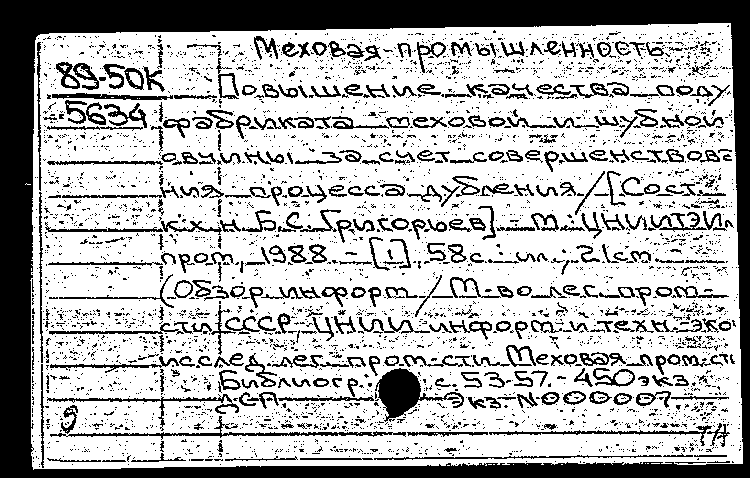 Меховая промышленность
89-50К Повышение качества полу
5634 фабриката меховой и шубной
овчины за счет совершенствова
ния процесса дубления / [Сост.
к.х.н. Б.С. Григорьев] - М.: ЦНИИТЭИл
пром, 1988. - [1], 58с.: ил.; 21см. -
(Обзор. информ / М-во лег. пром-
сти СССР, ЦНИИ информ и техн.-эко
исслед лег. пром-сти Меховая пром-сть
Библиогр.: с. 53-57. - 450экз.
ДСП. Экз. N000007.
9
ТА